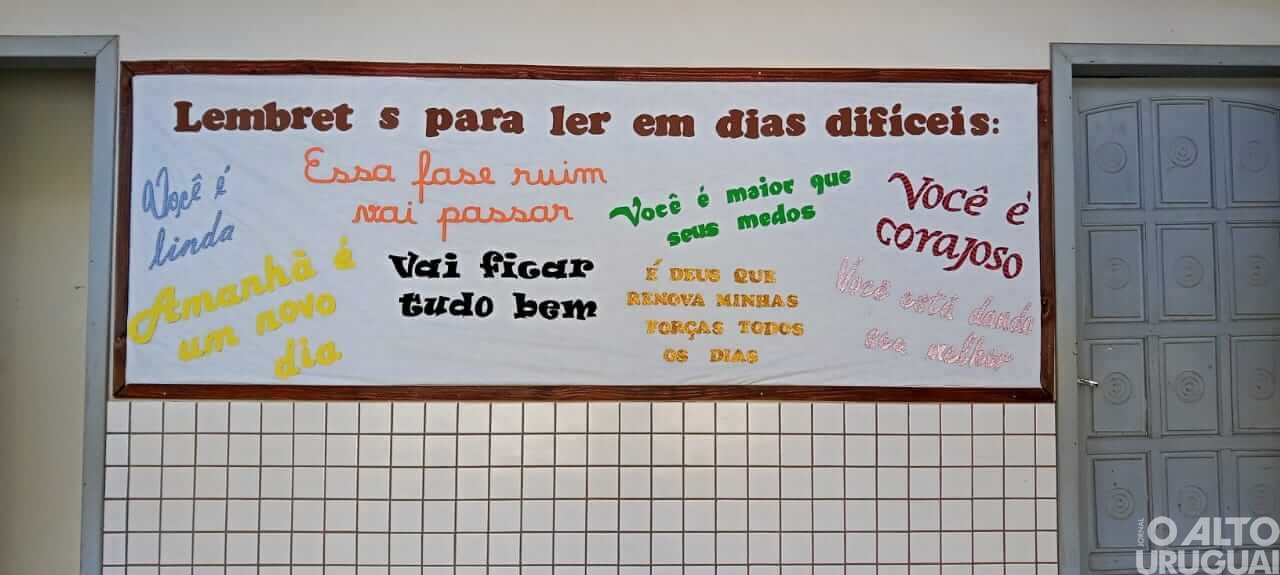 Lembret s para ler em dias difíceis:
Você é
linda
Essa fase ruim
vai passar
Você é maior que
seus medos
Você é
corajoso
Amanhã é
um novo
dia
Vai ficar
tudo bem
É DEUS QUE
RENOVA MINHAS
FORÇAS TODOS
OS DIAS
Você está dando
seu melhor
JORNAL
O ALTO
URUGUAI